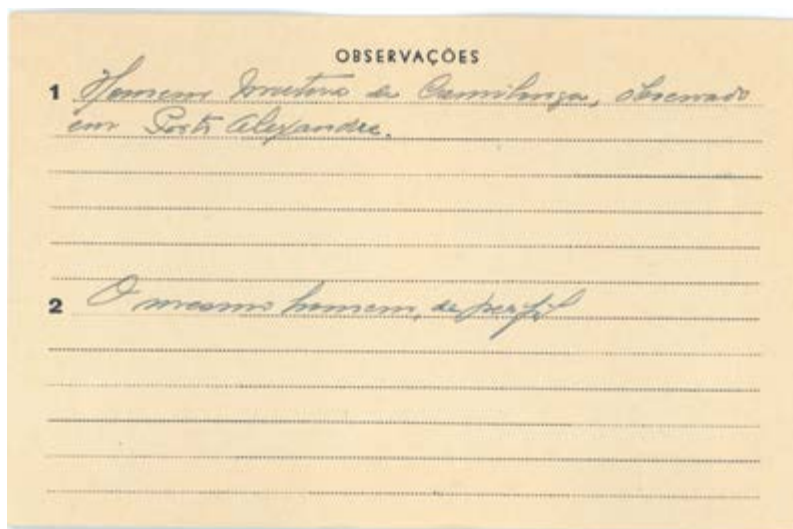 OBSERVAÇÕES
1 Homem de, observado
em Porto Alexandre.
2 O mesmo homem, de perfil